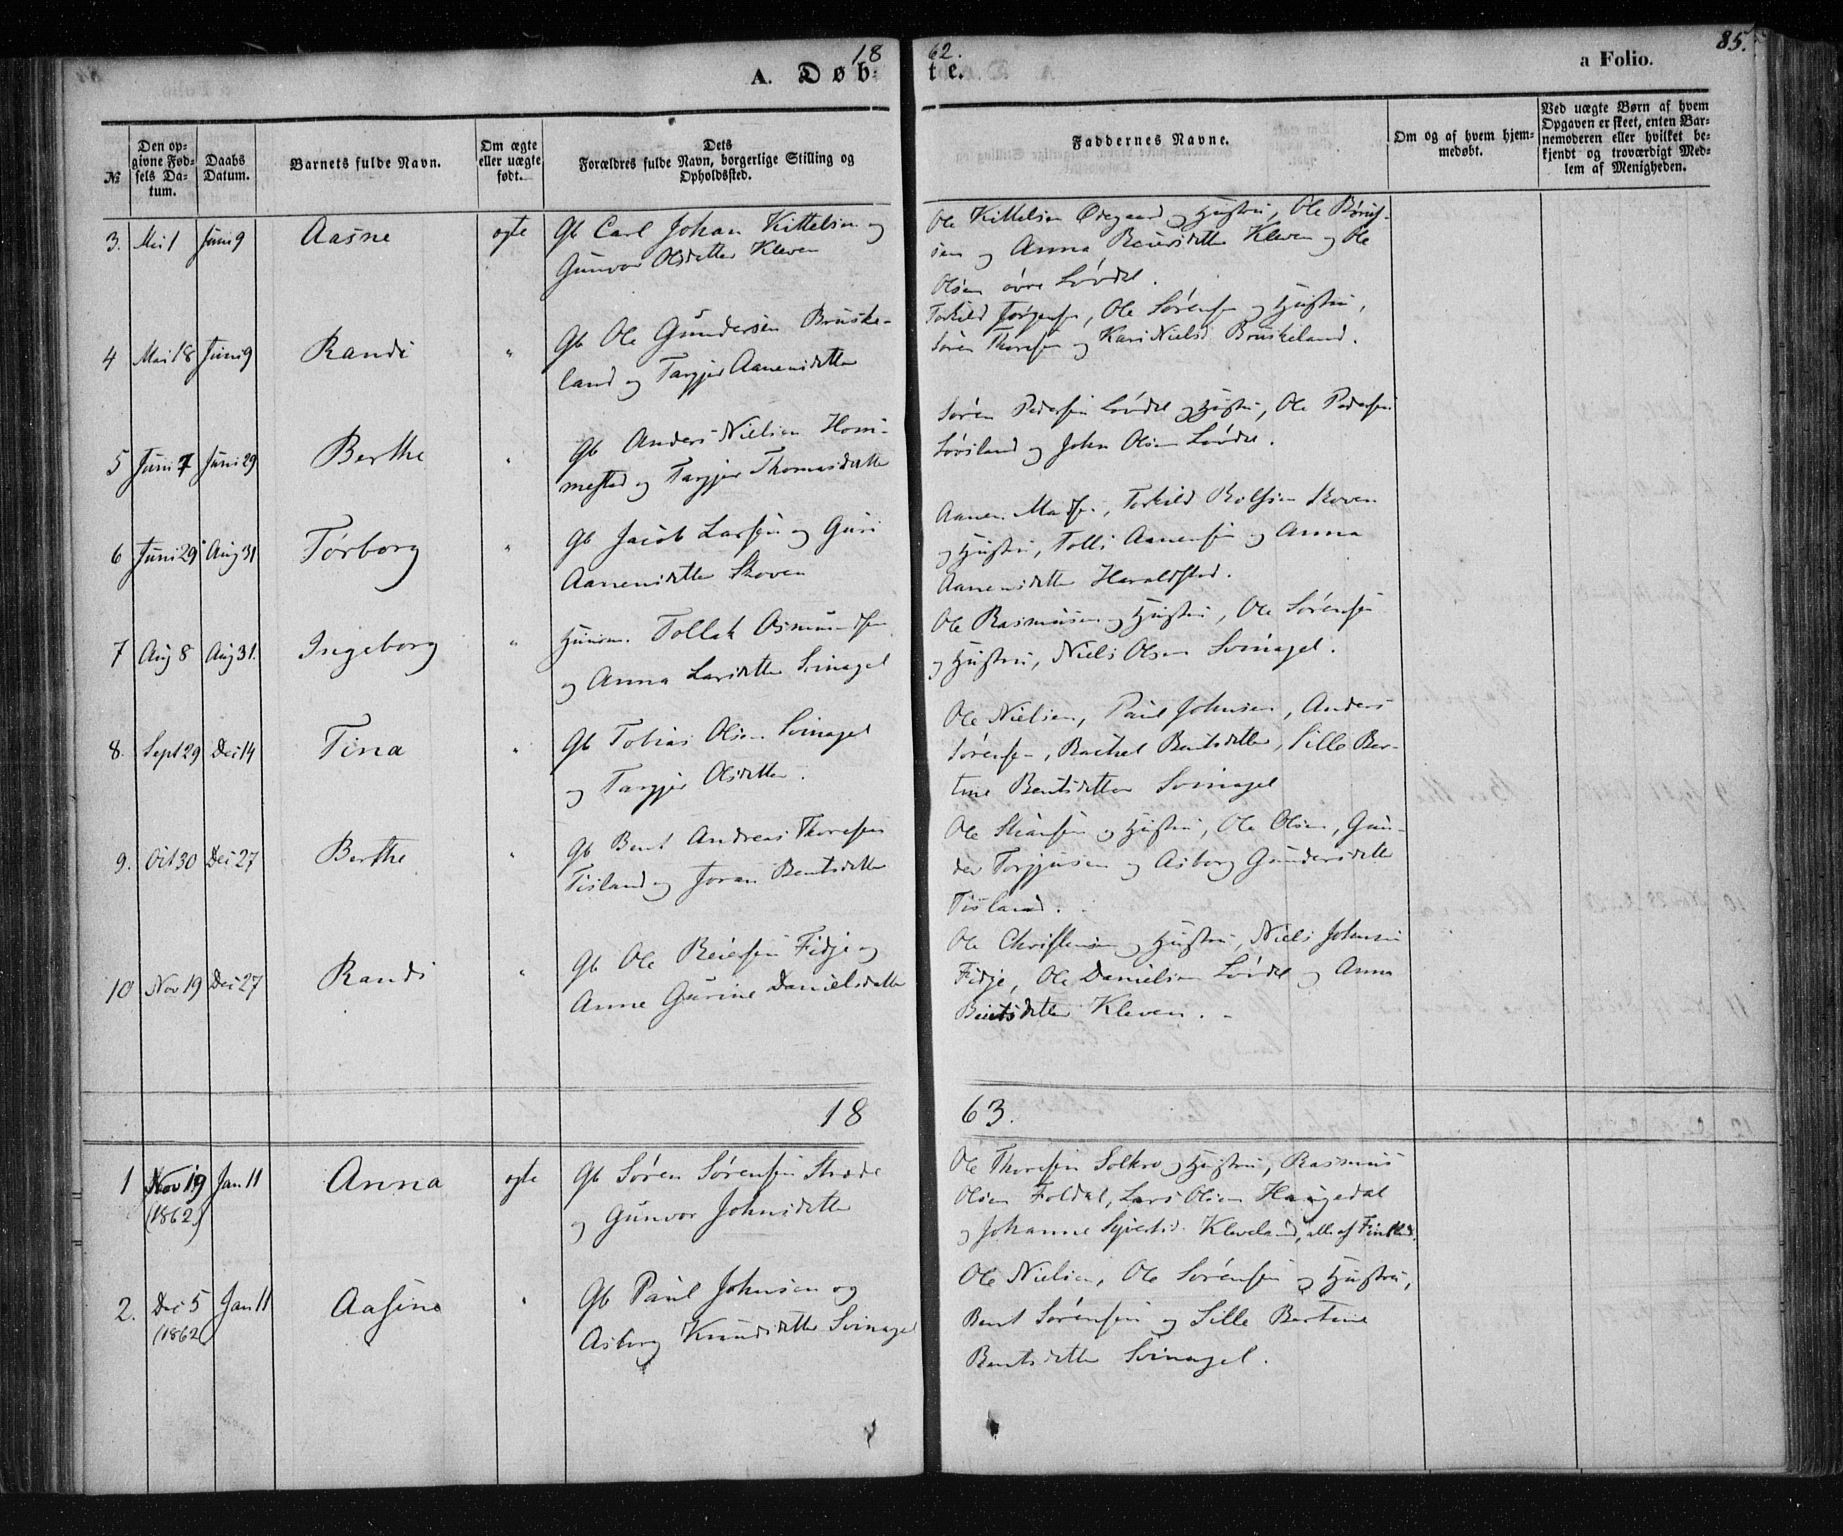 18 62. 85.
A. Døb- te. a Folio.
№ Den opgivne Fødsels Datum. Daabs Datum. Barnets fulde Navn. Om ægte eller uægte født. Dets Forældres fulde Navn, borgerlige Stilling og Opholdssted. Faddernes Navne. Om og af hvem hjemmedøbt. Ved uægte Børn af hvem Opgaven er skeet, enten Barnemoderen eller hvilket bekjendt og troværdigt Medlem af Menigheden.
3. Mai 1 Juni 9 Aasne ægte Gb Carl Johan Kittelsen og
Gunvor Olsdatter Kleven
Ole Kittelsen Ødegaard og Hustru, Ole
og Anna Kleven og Ole
Olsen øvre Løvdal.
4 Mai 18 Juni 9 Randi " Gb Ole Gundersen Bruske-
land og Targjer Aanensdatter
Torkild Jørgensen, Ole Sørensen og Hustru,
Søren Thoresen og Kari Nielsd Bruskeland.
5 Juni 7 Juni 29 Berthe " Gb Anders Nielsen Hom-
mestad og Targjer Thomasdatter
Søren Pedersen Løvdal og Hustru, Ole Pedersen
og John Olsen Løvdal.
6 Juni 29 Aug 31 Torborg " Gb Jacob Larsen og Guri
Aanensdatter Skoven
Aanen Torkild Skoven
og Hustru, Aanensen og Anna
Aanensdatter Haraldstad.
7 Aug 8 Aug 31. Ingeborg " Husm. Tollak Osmundsen
og Anna Larsdatter Svinagel
Ole Rasmusen og Hustru, Ole Sørensen
og Hustru, Niels Olsen Svinagel.
8. Sept 29 Dec 14 Tina " Gb Tobias Olsen Svinagel
og Targjer Olsdatter.
Ole Nielsen, Paul Johnsen, Anders
Sørensen, Rachel Bentsdatter, Sille Ber-
tine Bentsdatter Svinagel
9. Oct 30 Dec 27 Berthe " Gb Bent Andreas Thoresen
Tisland og Joran Bentsdatter
Ole og Hustru, Ole Olsen, Gun-
der Torjusen og Asborg Gundersdatter
Tisland.
10 Nov 19 Dec 27 Randi " Gb Ole Reiersen Fidje og
Anne Gurine Danielsdatter
Ole Christensen og Hustru, Niels Johnsen
Fidje, Ole Danielsen Løvdal og Anna
Kleven.
18 63.
1 Nov 19 (1862) Jan 11 Anna ægte Gb Søren Sørensen Stræde
og Gunvor Johnsdatter
Ole Thoresen og Hustru, Rasmus
Olsen Foldal, Lars Olsen Haugedal
og Johanne Kleveland, alle af Finsland.
2. Dec 5 (1862) Jan 11 Aasine " Gb Paul Johnsen og
Asborg Knudsdatter Svinagel
Ole Nielsen, Ole Sørensen og Hustru,
Bent Sørensen og Sille Bertine
Bentsdatter Svinagel.